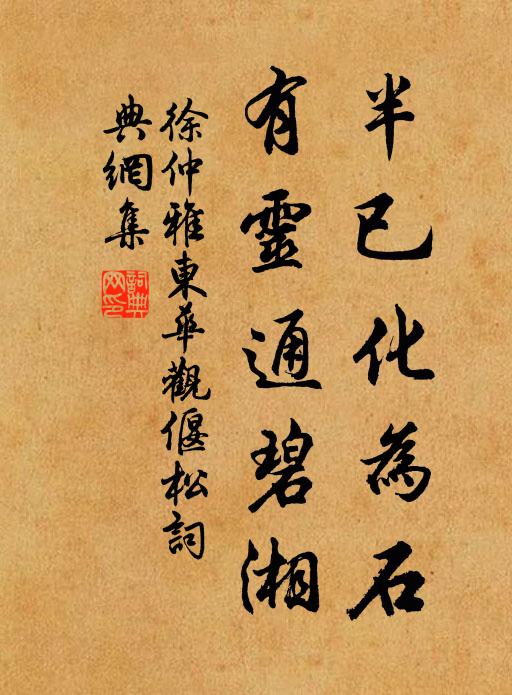 半已化為石
有靈通碧湘
徐仲雅東華觀偃松詞
典網集
詞典網印